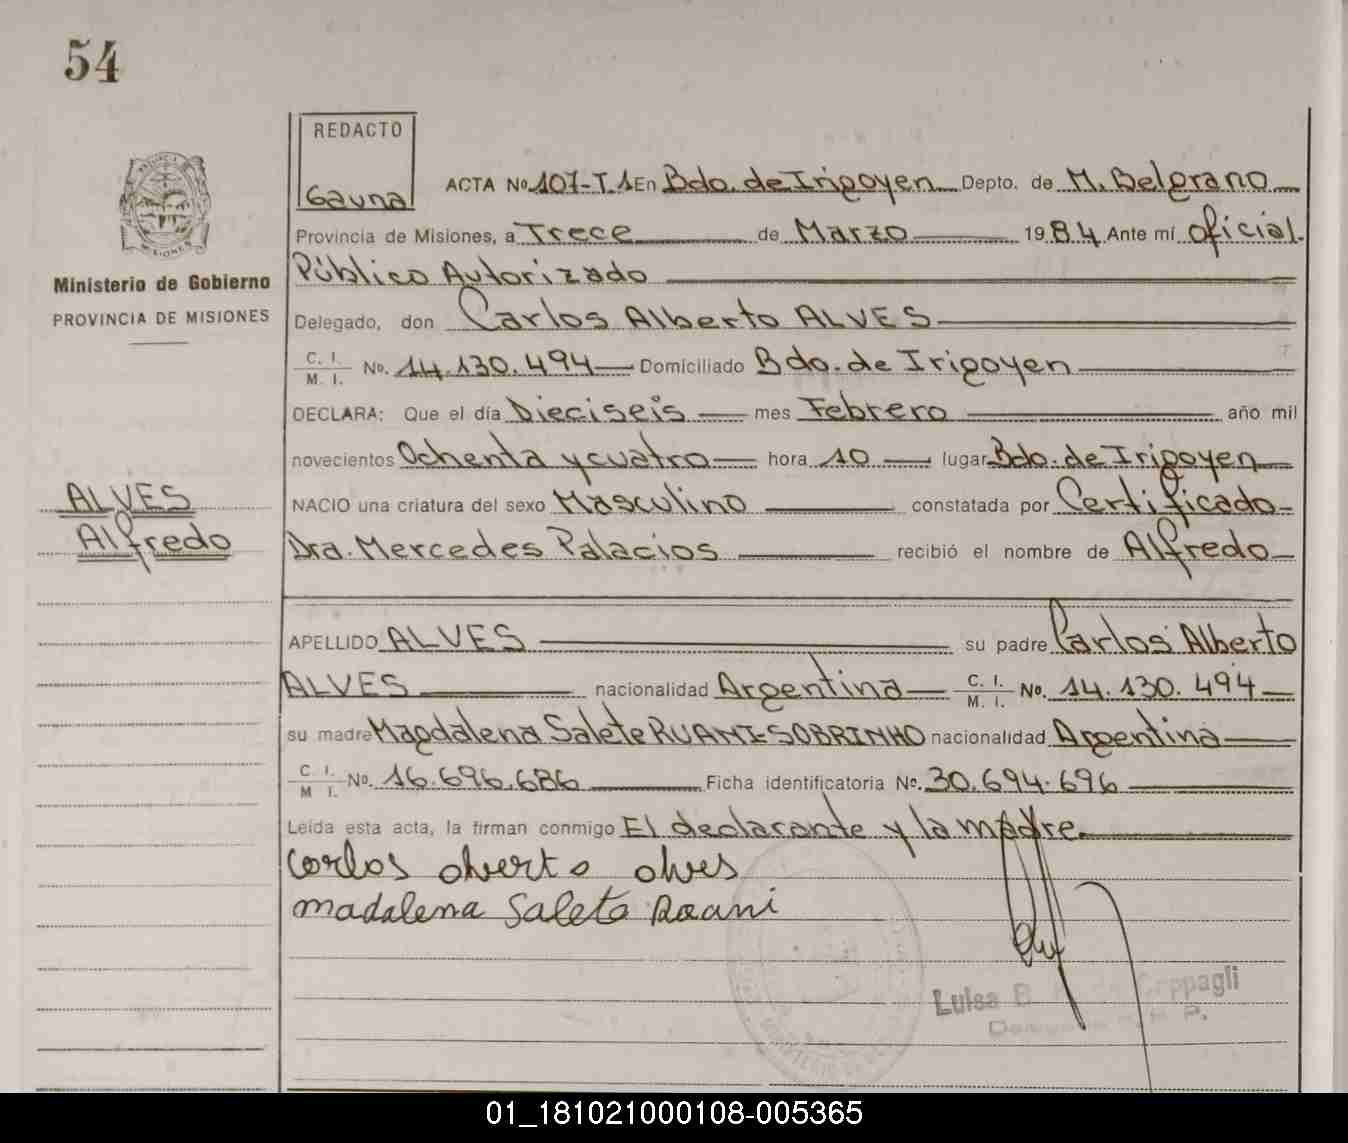 54
REDACTO
Gauna
ACTA No 107-T.1 En Bdo. de Irigoyen Depto. de M. Belgrano
Provincia de Misiones, a Trece de Marzo 1984 Ante mí oficial
Público Autorizado
Delegado, don Carlos Alberto ALVES
C. I. M. I. No. 14.130.494 Domiciliado Bdo. de Irigoyen
DECLARA: Que el día Dieciseis mes Febrero año mil
novecientos Ochenta y cuatro hora 10 lugar Bdo. de Irigoyen
NACIO una criatura del sexo Masculino constatada por Certificado
Dra. Mercedes Palacios recibió el nombre de Alfredo
APELLIDO ALVES su padre Carlos Alberto
ALVES nacionalidad Argentina C. I. M. I. No. 14.130.494
su madre Magdalena Salete RUANI-SOBRINHO nacionalidad Argentina
C. I. M. I. No. 16.696.686 Ficha identificatoria No. 30.694.696
Leída esta acta, la firman conmigo El declarante y la madre.
Carlos alverto alves
madalena Salete Ruani
Luisa B. Coppagli
MISIONES
Ministerio de Gobierno
PROVINCIA DE MISIONES
ALVES
Alfredo
01_181021000108-005365